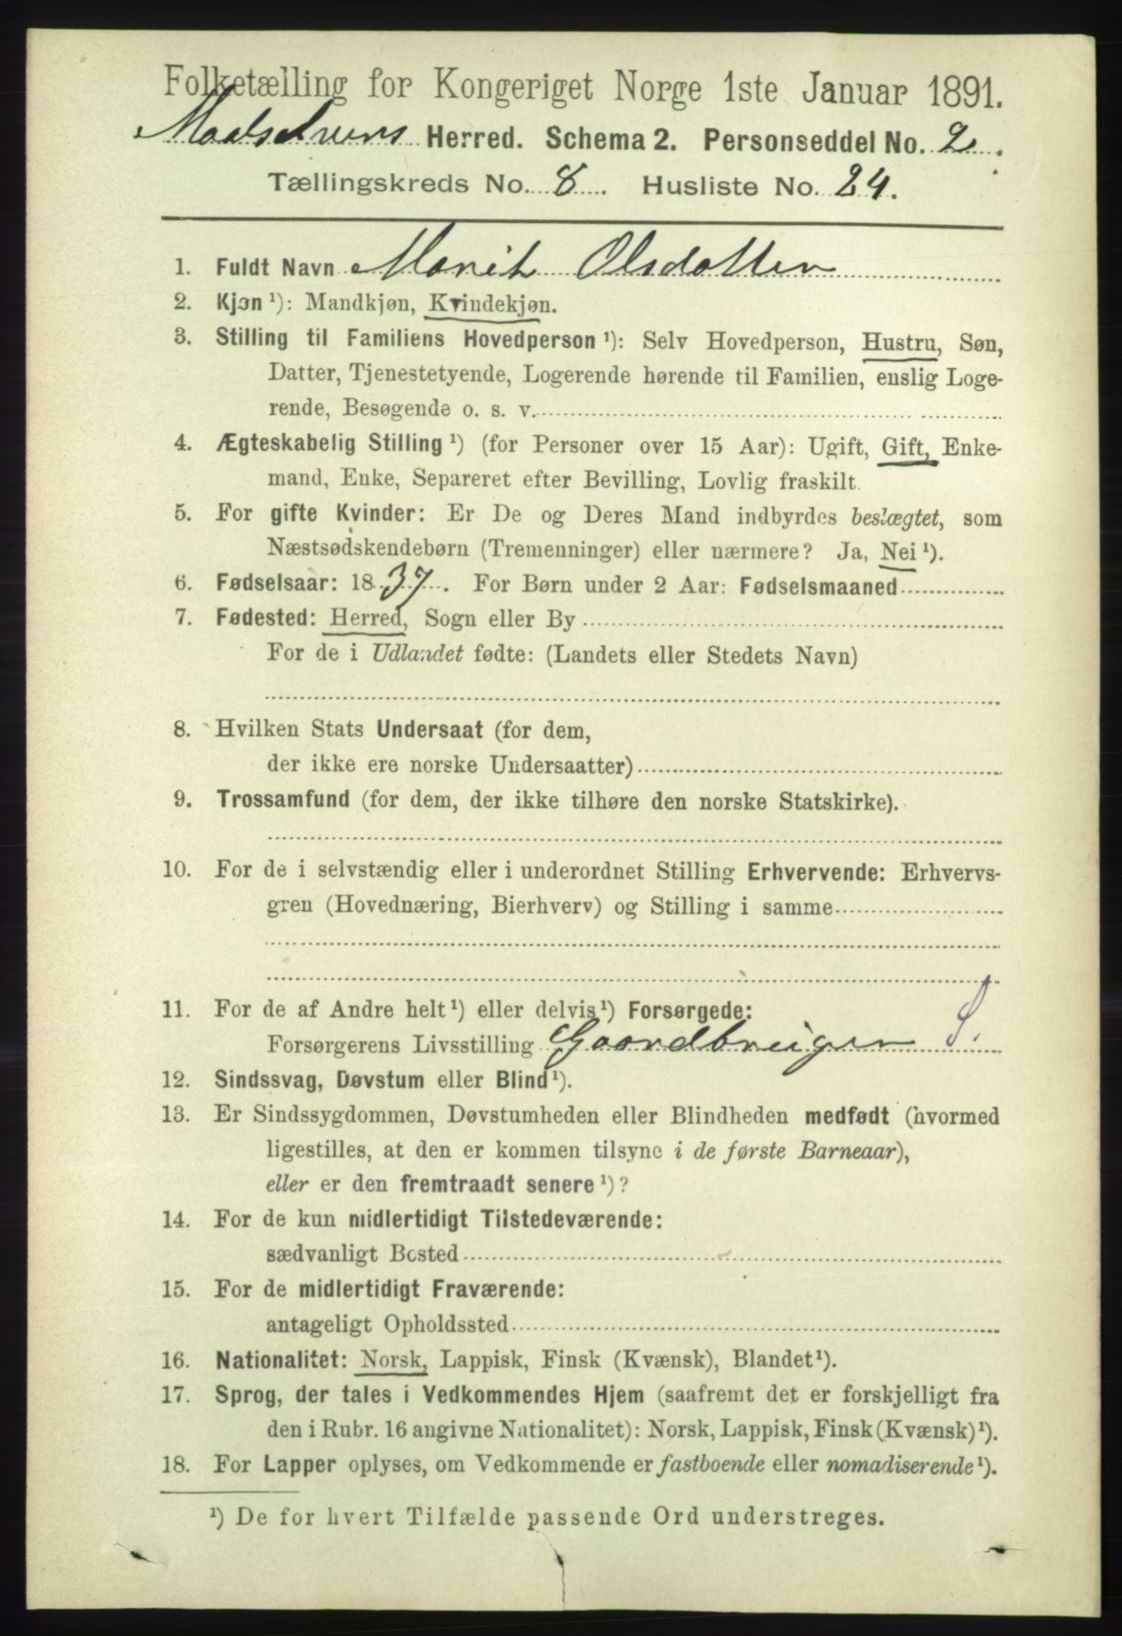 Folketælling for Kongeriget Norge 1ste Januar 1891.
Maalselvens Herred. Schema 2. Personseddel No. 2.
Tællingskreds No. 8. Husliste No. 24.
1. Fuldt Navn Marit Olsdatter
2. Kjøn ¹): Mandkjøn, Kvindekjøn.
3. Stilling til Familiens Hovedperson ¹): Selv Hovedperson, Hustru, Søn,
Datter, Tjenestetyende, Logerende hørende til Familien, enslig Loge-
rende, Besøgende o. s. v.
4. Ægteskabelig Stilling ¹) (for Personer over 15 Aar): Ugift, Gift, Enke-
mand, Enke, Separeret efter Bevilling, Lovlig fraskilt.
5. For gifte Kvinder: Er De og Deres Mand indbyrdes beslægtet, som
Næstsødskendebørn (Tremenninger) eller nærmere? Ja, Nei ¹).
6. Fødselsaar: 1837. For Børn under 2 Aar: Fødselsmaaned
7. Fødested: Herred, Sogn eller By
For de i Udlandet fødte: (Landets eller Stedets Navn)
8. Hvilken Stats Undersaat (for dem,
der ikke ere norske Undersaatter)
9. Trossamfund (for dem, der ikke tilhøre den norske Statskirke).
10. For de i selvstændig eller i underordnet Stilling Erhvervende: Erhvervs-
gren (Hovednæring, Bierhverv) og Stilling i samme
11. For de af Andre helt ¹) eller delvis ¹) Forsørgede: S.
Forsørgerens Livsstilling Gaardbruger
12. Sindssvag, Døvstum eller Blind ¹).
13. Er Sindssygdommen, Døvstumheden eller Blindheden medfødt (hvormed
ligestilles, at den er kommen tilsyne i de første Barneaar),
eller er den fremtraadt senere ¹)?
14. For de kun midlertidigt Tilstedeværende:
sædvanligt Bosted
15. For de midlertidigt Fraværende:
antageligt Opholdssted
16. Nationalitet: Norsk, Lappisk, Finsk (Kvænsk), Blandet ¹).
17. Sprog, der tales i Vedkommendes Hjem (saafremt det er forskjelligt fra
den i Rubr. 16 angivne Nationalitet): Norsk, Lappisk, Finsk (Kvænsk) ¹).
18. For Lapper oplyses, om Vedkommende er fastboende eller nomadiserende ¹).
¹) De for hvert Tilfælde passende Ord understreges.